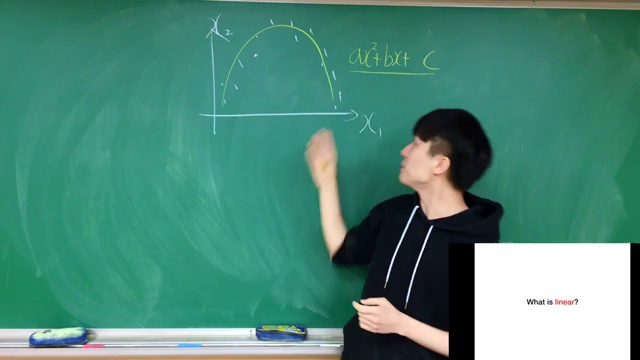 x₂
ax²+bx+ c
x₁
What is linear?